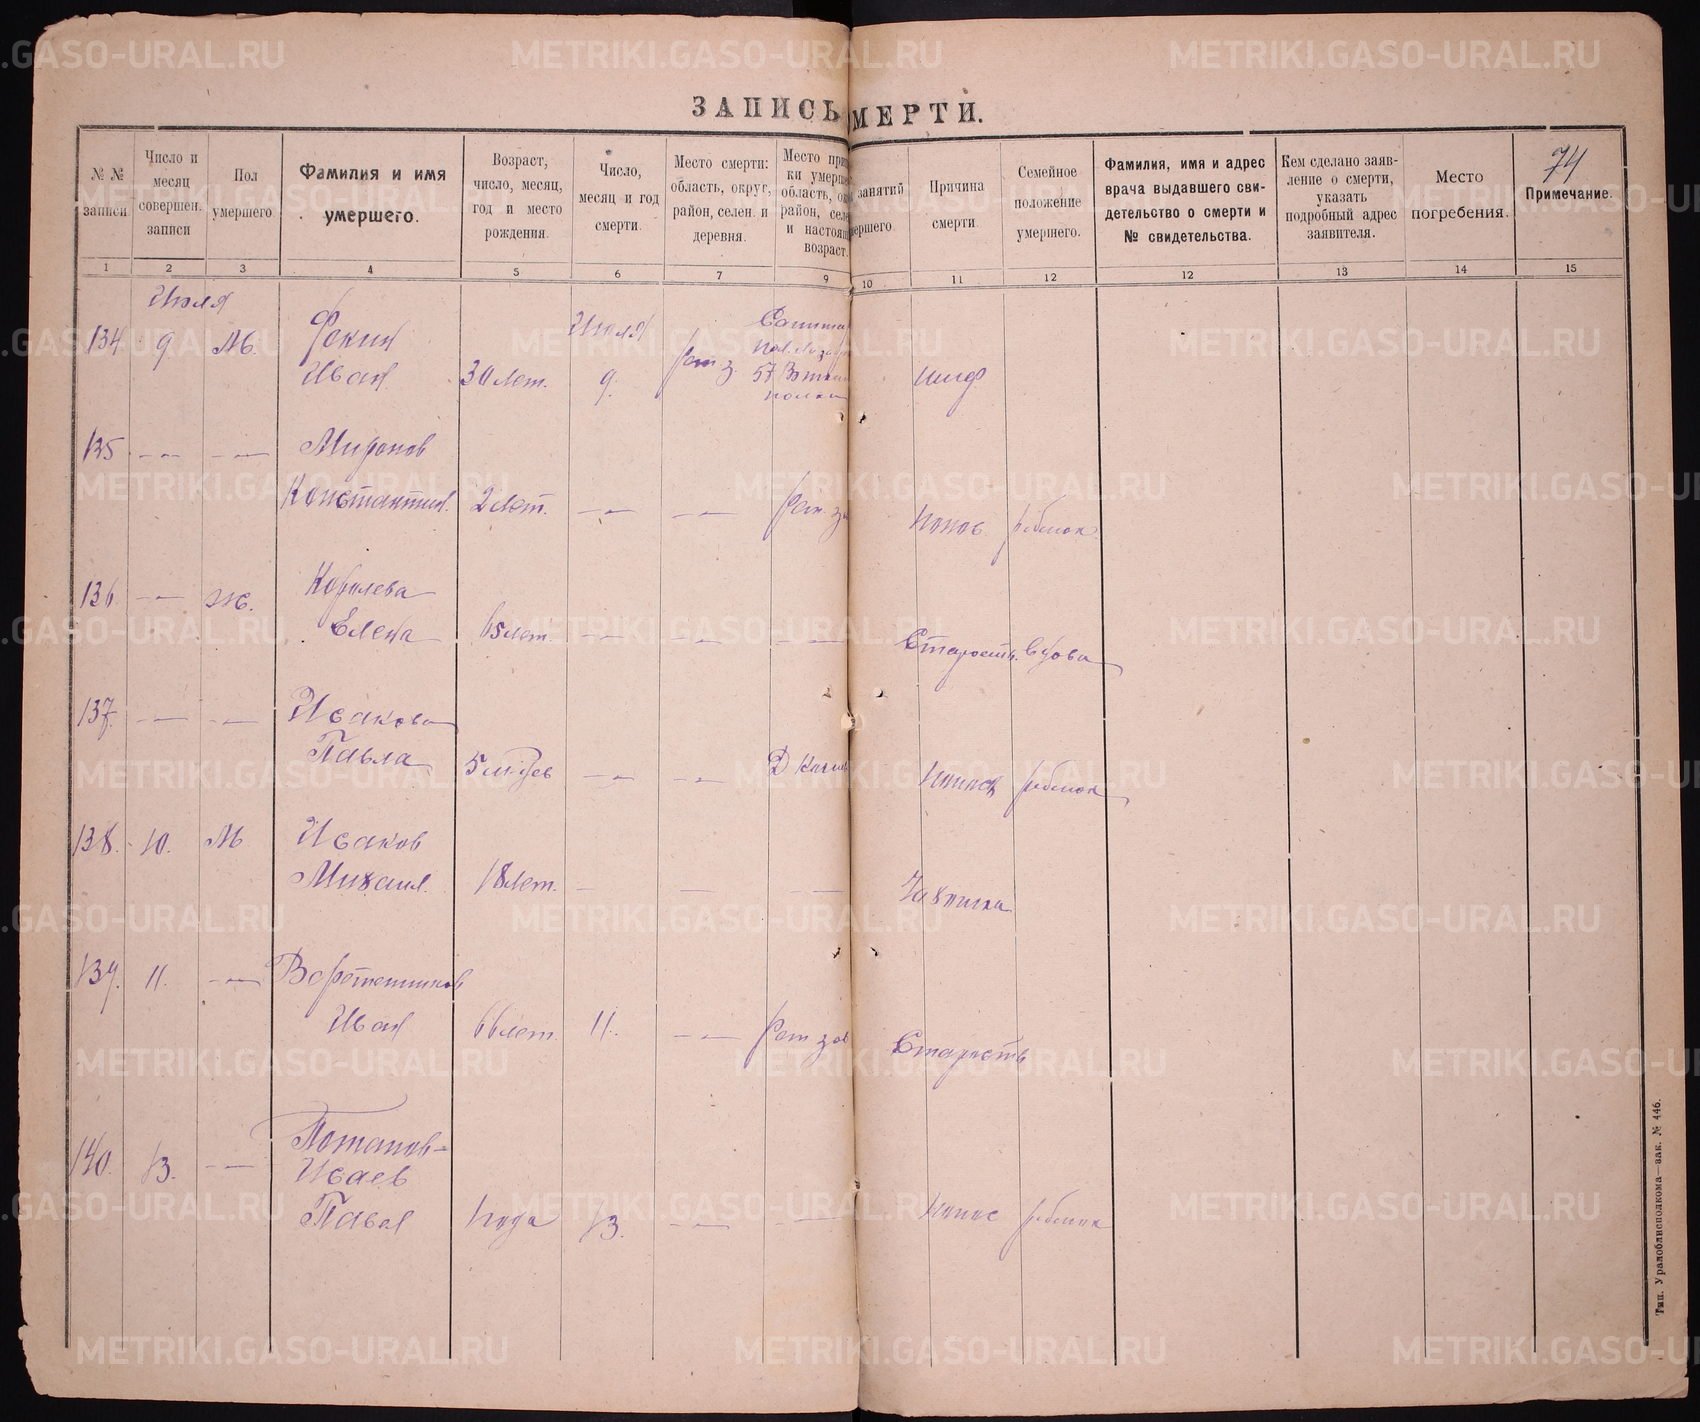 ЗАПИСЬ
МЕРТИ.
74
№ № записи
Число и месяц совершен. записи
Пол умершего
Фамилия и имя умершего.
Возраст, число, месяц, год и место рождения.
Число, месяц и год смерти.
Место смерти: область, округ, район, селен. и деревня.
занятий
Причина смерти.
Семейное положение умершего.
Фамилия, имя и адрес врача выдавшего свидетельство о смерти и № свидетельства.
Кем сделано заявление о смерти, указать подробный адрес заявителя.
Место погребения.
Примечание.
1 2 3 4 5 6 7 9 10 11 12 12 13 14 15
Июля
134 9 М. Фокин Июля
Иван 30 лет. 9.
135 — — Миронов
Константин. 2 лет. — — понос ребенок
136 — ж. Королева
Елена 65 лет. — — — Старость. вдова
137. — — Исакова
Павла — — понос ребенок
138. 10. М Исаков
Михаил. 18 лет. — — — Чахотка
139. 11. —
Иван 66 лет. 11. — Старость
140. 13. — Потапов-
Исаев
Павел 1 года 13. — — понос ребенок
Тип. Уралоблисполкома—зак. № 446.
METRIKI.GASO-URAL.RU